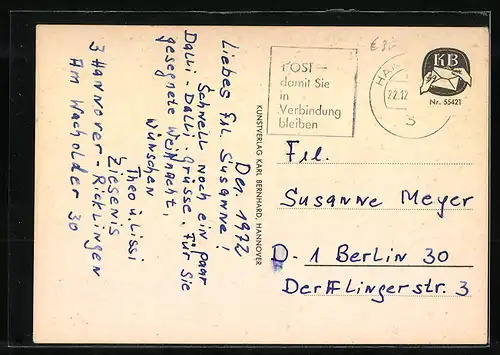 Dez. 1972
Liebes Frl. Susanne!
Schnell noch ein paar
Dalli-Dalli-Grüsse. Für Sie
gesegnete Weihnacht,
wünschen
Theo u. Lissi
Ziesenis
3 Hannover-Ricklingen
Am Wacholder 30
KUNSTVERLAG KARL BERNHARD, HANNOVER
POST -
damit Sie
in
Verbindung
bleiben
HAN
22.12
3
KB
Nr. 55421
Frl.
Susanne Meyer
D-1 Berlin 30
Derfflingerstr. 3